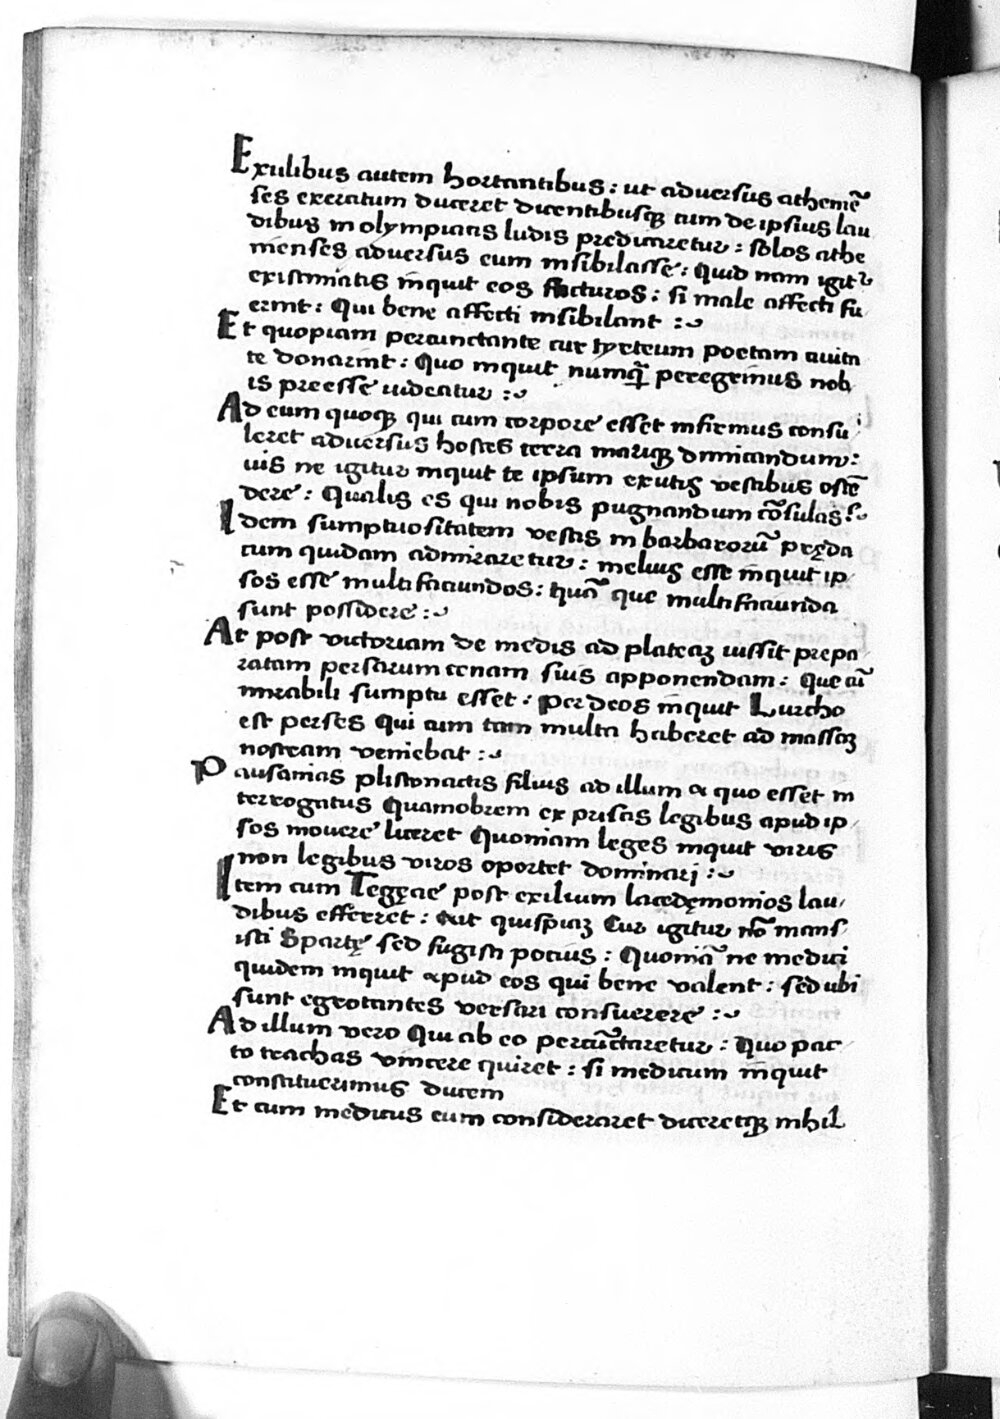 Exulibus autem hortantibus : ut aduersus athenıē
ses exercitum duceret dicentibusqꝫ cum de ipsius lau
dibus in olympiacis ludis predicaretur : solos athe
nienses aduersus eum insibilasse : Quid nam igitᷣ
existimatis inquit eos facturos : si male affecti fu
erint : Qui bene affecti insibilant :~
Et quopiam percunctante cur tyrteum poetam ciuita
te donarint : Quo inquit numqꝫ peregrinus nob
is preesse uideatur :~
Ad eum quoqꝫ qui cum corpore esset infirmus consu
leret aduersus hostes terra mariqꝫ dimicandum :
uis ne igitur inquit te ipsum exutis vestibus ostē
dere : Qualis es qui nobis pugnandum cōsulas :~
Idem sumptuositatem vestis in barbarorū pręda
cum quidam admiraretur : melius esse inquit ip
sos esse multifaciundos : quā que multifaciunda
sunt possidere :~
At post victoriam de medis ad plateaꝫ iussit prepa
ratam persarum cenam suis apponendam : Que cū
mirabili sumptu esset : Per deos inquit Lurcho
est perses qui cum tam multa haberet ad massaꝫ
nostram veniebat :~
Pausanias plistonactis filius ad illum a quo esset in
terrogatus Quamobrem ex priscis legibus apud ip
sos mouere liceret Quoniam leges inquit viris
non legibus viros oportet dominarj :~
Item cum Tegęae post exilium lacedęmonios lau
dibus efferret : Ait quispiaꝫ Cur igitur nō mans
isti Spartę sed fugisti potius : Quoniā ne medici
quidem inquit apud eos qui bene valent : sed ubi
sunt egrotantes versari consueuere :~
Ad illum vero Qui ab eo percūctaretur : Quo pac
to trachas vincere quiret : si medicum inquit
constituerimus ducem
Et cum medicus eum consideraret diceretqꝫ nihil